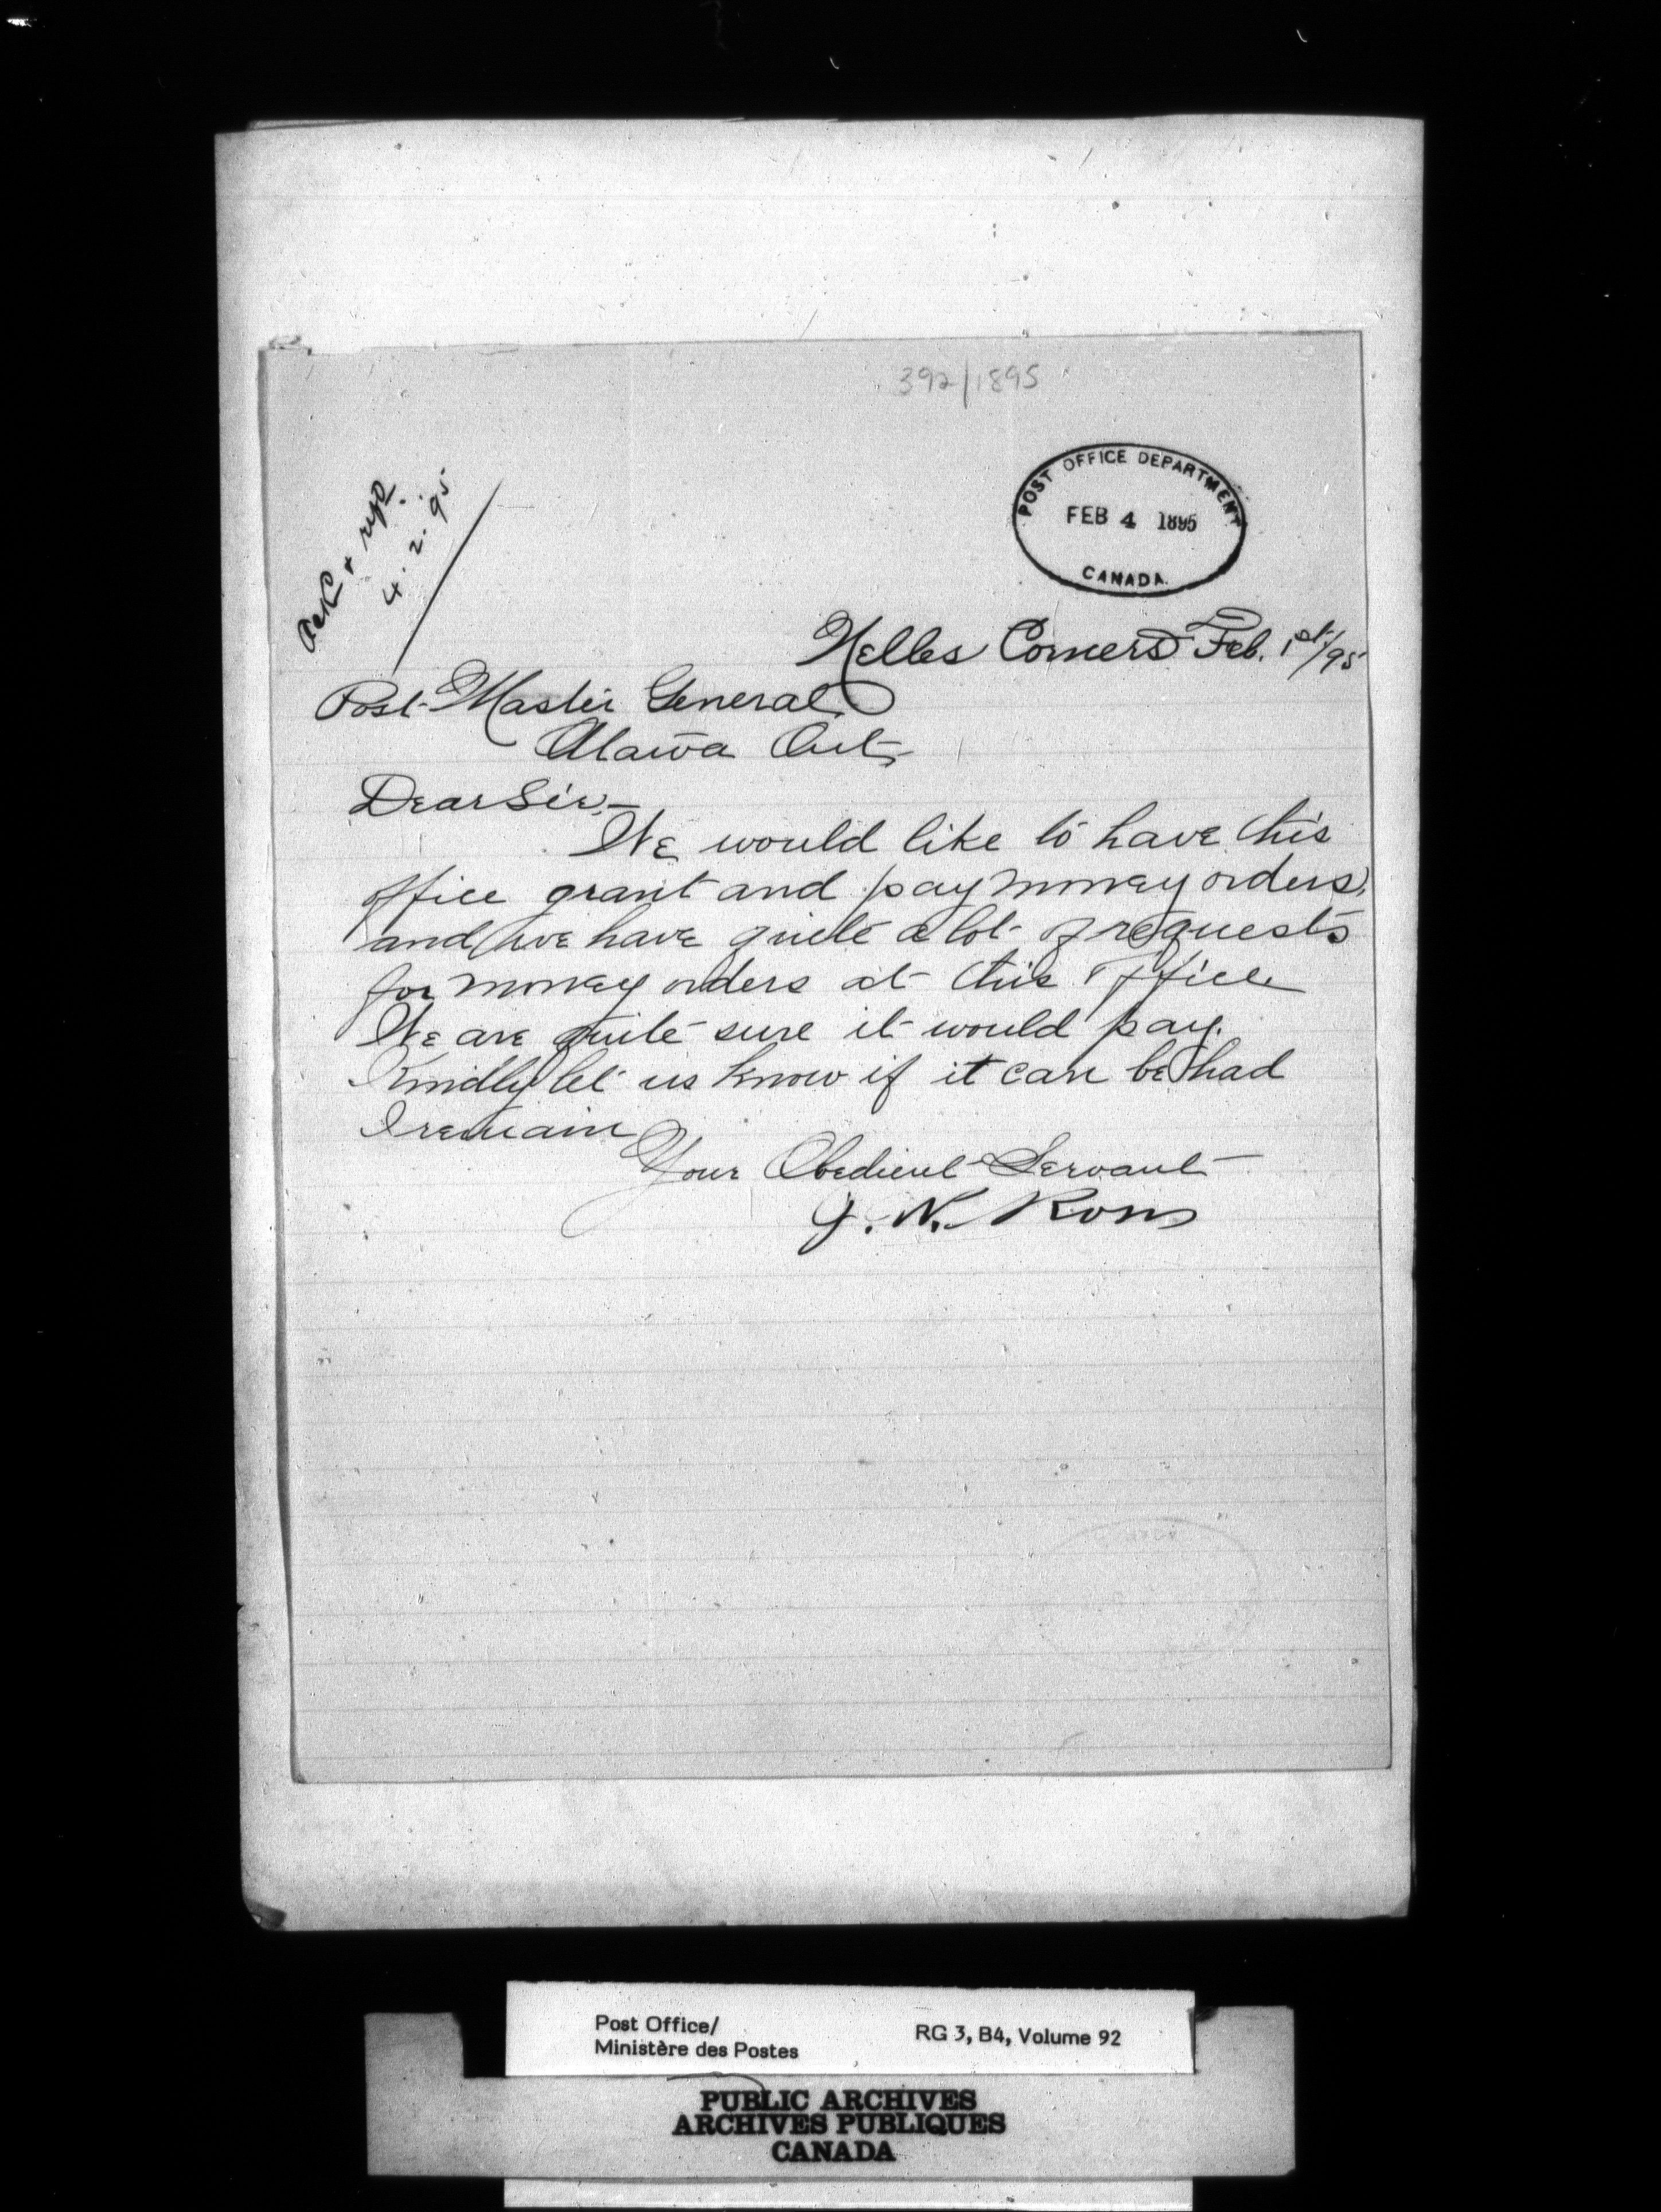 392/1895
Ack & rep
4.2.95
POST OFFICE DEPARTMENT
FEB 4 1895
CANADA
Nelles Corners Feb. 1st/95
Post-Master General
Otawa Ont,
Dear Sir,-
We would like to have this
office grant and pay money orders,
and we have quite a lot of requests
for money orders at this office
We are quite sure it would pay.
Kindly let us know if it can be had
I remain
Your Obedient Servant
J. N. Ross
Post Office/
Ministère des Postes
RG 3, B4, Volume 92
PUBLIC ARCHIVES
ARCHIVES PUBLIQUES
CANADA